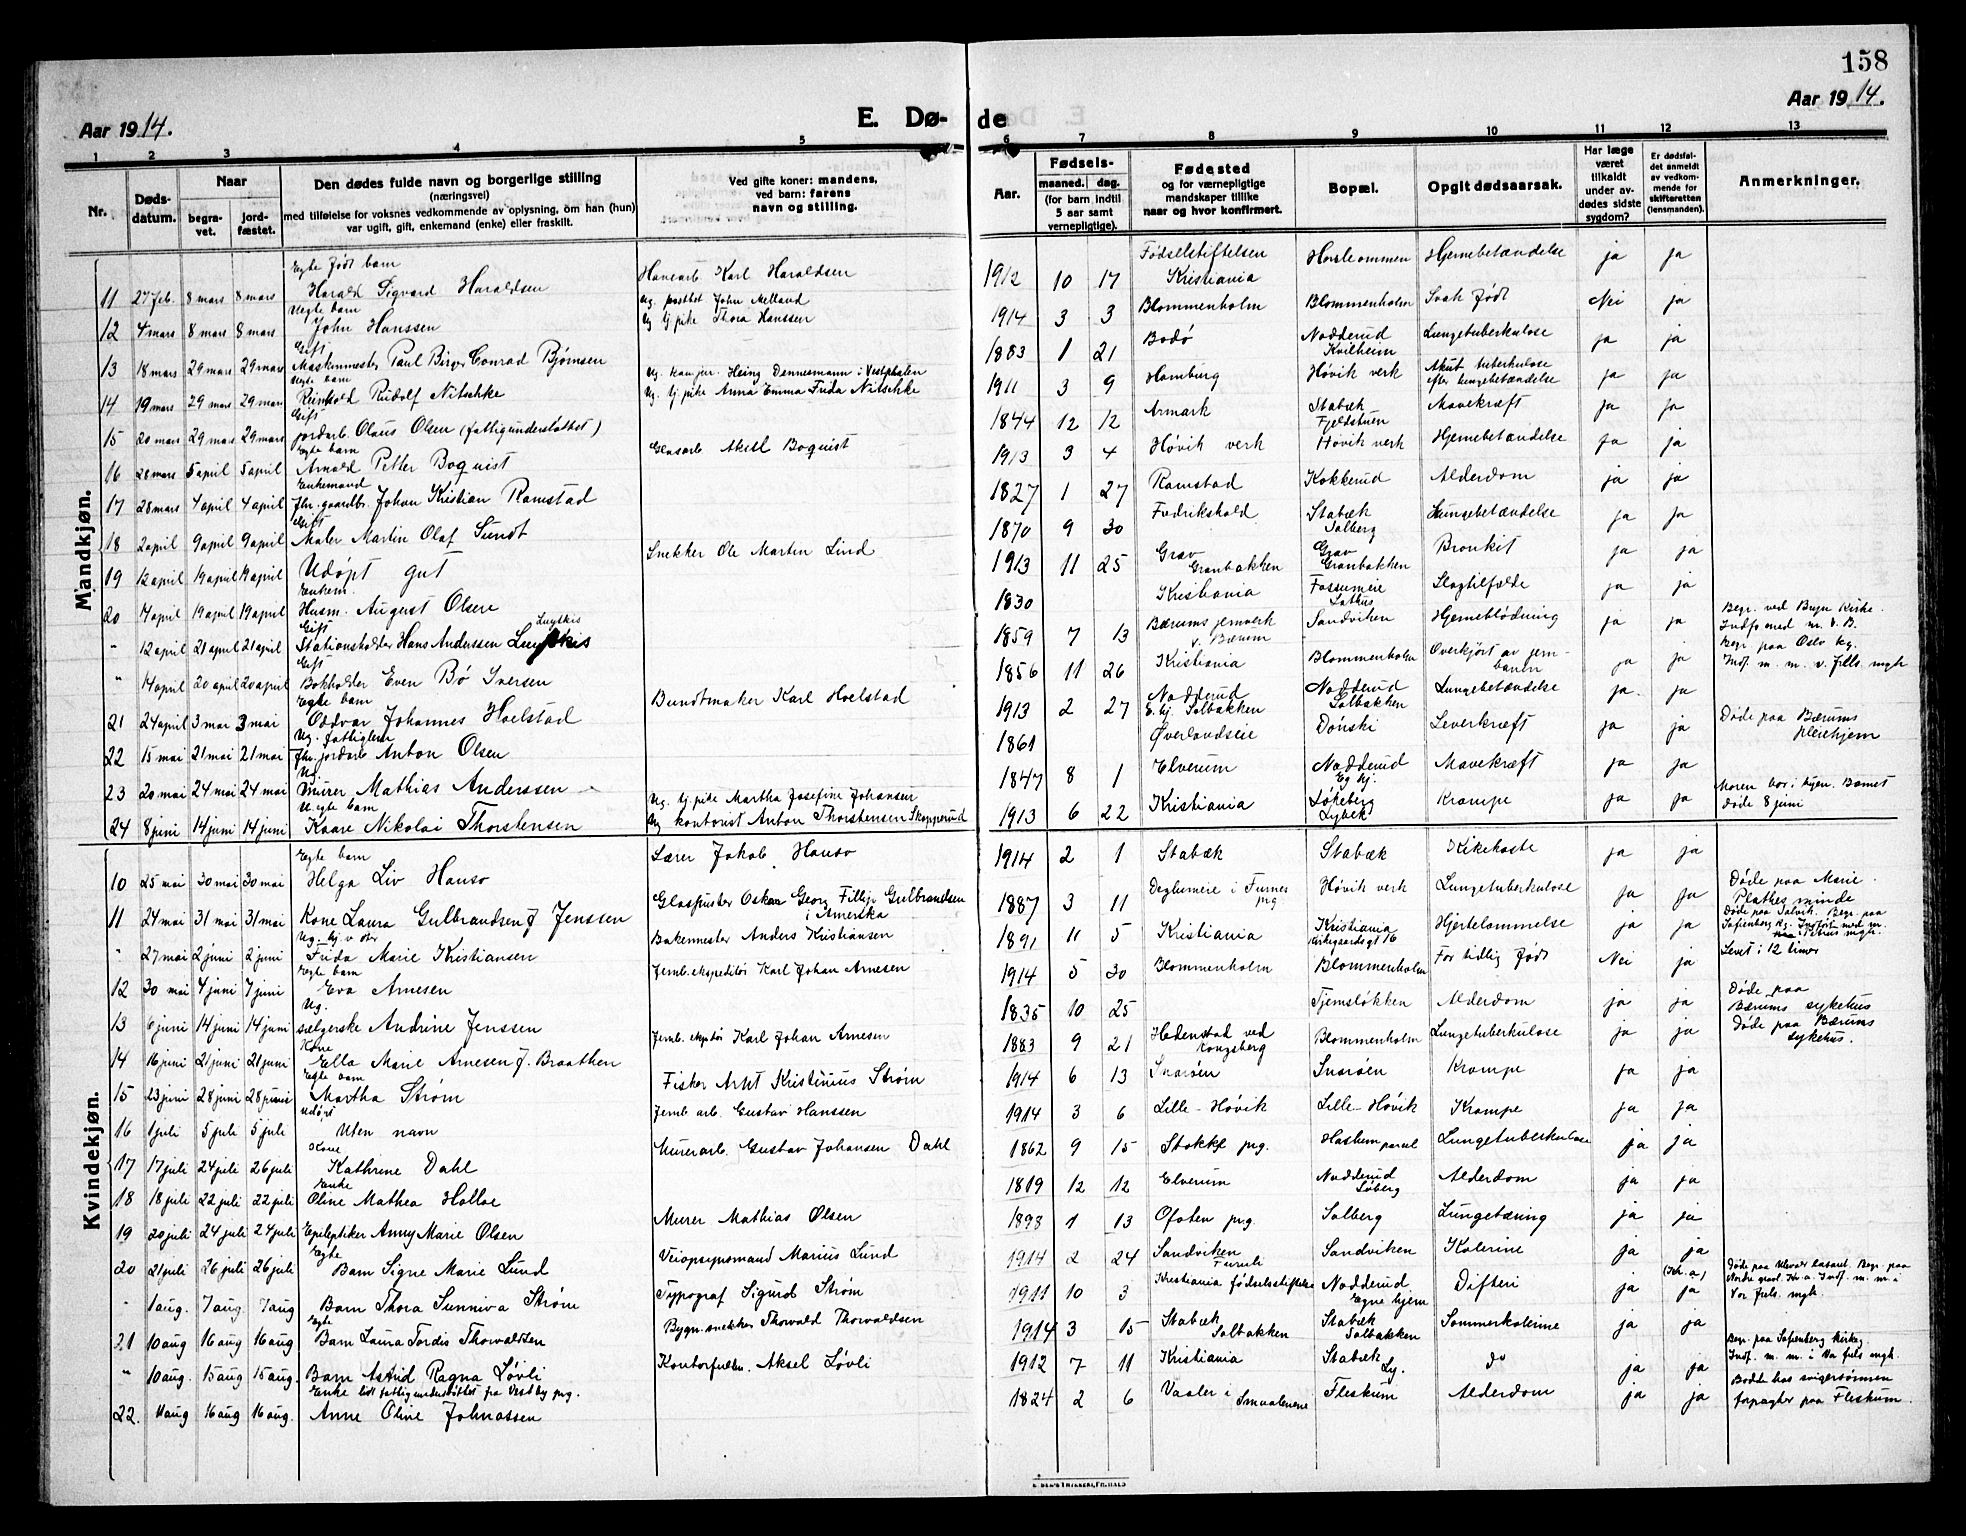 158
Aar 1914.
E. Døde
Aar 1914.
1 2 3 4 5 6 7 8 9 10 11 12 13
Nr.
Dødsdatum.
Naar
begravet.
jordfæstet.
Den dødes fulde navn og borgerlige stilling
(næringsvei)
med tilføielse for voksnes vedkommende av oplysning, om han (hun)
var ugift, gift, enkemand (enke) eller fraskilt.
Ved gifte koner: mandens,
ved barn: farens
navn og stilling.
Aar.
Fødsels-
maaned. dag.
(for barn indtil
5 aar samt
vernepligtige).
Fødested
og for værnepligtige
mandskaper tillike
naar og hvor konfirmert.
Bopæl.
Opgit dødsaarsak.
Har læge
været
tilkaldt
under avdødes sidste
sygdom?
Er dødsfaldet anmeldt
av vedkommende for
skifteretten
(lensmanden).
Anmerkninger.
Mandkjøn.
Egte født barn
11 27 feb. 8 mars 8 mars Harald Sigvard Haraldsen Karl Haraldsen 1912 10 17 Fødselstiftelsen Kristiania Hjernebetændelse ja ja
Uegte barn
12 4 mars 8 mars 8 mars John Hanssen Ug. John Melland Ug tj. pike Thora Hanssen 1914 3 3 Blommenholm Blommenholm Svak født Nei ja
Gift
13 18 mars 29 mars 29 mars Maskinmester Paul Birger Conrad Bjørnsen 1883 1 21 Bodø Nadderud Kvilheim Lungetuberkulose ja ja
Uegte barn
14 19 mars 29 mars 29 mars Reinhold Rudolf Nitschke Ug. Heinz Dannesmann i Vestphalen Ug. tj. pike Anna Emma Frida Nitschke 1911 3 9 Hamburg Høvik verk Akut tuberkulose efter lungebetændelse ja ja
Gift
15 20 mars 29 mars 29 mars jordarb. Olaus Olsen (fattigunderstøttet) 1844 12 12 Aremark Stabæk Fjeldstuen Mavekræft ja ja
Egte barn
16 28 mars 5 april 5 april Arnold Petter Boquist Glasarb. Aksel Boquist 1913 3 4 Høvik verk Høvik verk Hjernebetændelse ja ja
Enkemand
17 28 mars 4 april 4 april fhr. gaardbr. Johan Kristian Ramstad 1827 1 27 Ramstad Kokkerud Alderdom ja ja
Gift
18 2 april 9 april 9 april Maler Martin Olaf Sundt 1870 9 30 Fredrikshald Stabæk Solberg Lungebetændelse ja ja
19 12 april 19 april 19 april Udøpt gut Snekker Ole Martin Lind 1913 11 25 Grav Granbakken Grav Granbakken Bronkit ja ja
Enkem.
20 14 april 19 april 19 april Husm. August Olsen 1830 Kristiania Fossumeie Slagtilfælde ja ja
Gift
" 12 april 21 april 21 april Stationsholder Hans Anderssen 1859 7 13 Bærums jernverk v. Bærum Sandviken Hjerneblødning ja ja Begr. ved Bryn Kirke. Indf. med m. v. B.
Gift
" 14 april 20 april 20 april Bokholder Even Bø Iversen 1856 11 26 Kristiania Blommenholm Overkjørt av jernbanen ja ja Begr. paa Oslo kg. Indf. m. m. v. mgh
Egte barn
21 24 april 3 mai 3 mai Oddvar Johannes Hoelstad Bundtmaker Karl Hoelstad 1913 2 27 Nadderud E. hj. Solbakken Nadderud Solbakken Lungebetændelse ja. ja
Ug. fattiglem
22 15 mai 21 mai 21 mai fhr. jordarb Anton Olsen 1861 Øverlandseie Dønski Leverkræft ja ja Døde paa Bærums pleiehjem
Ug.
23 20 mai 24 mai 24 mai Murer Mathias Anderssen 1847 8 1 Elverum Nadderud Eg hj. Mavekræft ja ja
U. egte barn
24 8 juni 14 juni 14 juni Kaare Nikolai Thorstensen Ug. tj. pike Martha Josefine Johansen Ug kontorist Anton Thorstensen Skopperud 1913 6 22 Kristiania Løkeberg Lysek Krampe ja ja Moren bor i hjem. Barnet døde 8 juni
Kvindekjøn.
Egte barn
10 25 mai 30 mai 30 mai Helga Liv Hansø Lærer Jakob Hansø 1914 2 1 Stabæk Stabæk Kikhoste ja ja
11 24 mai 31 mai 31 mai Kone Laura Gulbrandsen f. Jenssen Glaspuster Oskar Georg Fillip Gulbrandsen i Amerika 1887 3 11 i Furnes prg Høvik verk Lungetuberkulose ja ja Døde paa Marie Plathes minde
" 27 mai 2 juni 2 juni Frida Marie Kristiansen Bakermester Anders Kristiansen 1891 11 5 Kristiania Kristiania 16 Hjertelammelse ja ja Døde paa Solvik. Begr. paa Sofienberg kg. Indført med m.
Egte barn
12 30 mai 4 juni 7 juni Eva Arnesen Jernb. ekspeditør Karl Johan Arnesen 1914 5 30 Blommenholm Blommenholm For tidlig født Nei ja Levet i 12 timer
Ug.
13 6 juni 14 juni 14 juni sælgerske Andrine Jenssen 1835 10 25 Tjernsløkken Alderdom ja ja Døde paa Bærums sykehus
Kone
14 16 juni 21 juni 21 juni Ella Marie Arnesen f. Braathen Jernb. ekspdør Karl Johan Arnesen 1883 9 21 Hedenstad ved Kongsberg Blommenholm Lungetuberkulose ja ja Døde paa Bærums sykehus.
Egte barn
15 23 juni 28 juni 28 juni Martha Strøm Fisker Arnt Kristinius Strøm 1914 6 13 Snarøen Snarøen Krampe ja ja
Udøpt
16 1 juli 5 juli 5 juli Uten navn Jernb. arb. Gustav Hanssen 1914 3 6 Lille-Høvik Lille-Høvik Krampe ja ja
Kone
17 17 juli 24 juli 26 juli Kathrine Dahl Murerarb. Gustav Johansen Dahl 1862 9 15 Stokke prg. Haslum Lungetuberkulose ja ja
Enke
18 18 juli 22 juli 22 juli Oline Mathea Holloe 1819 12 12 Elverum Nadderud Løberg Alderdom ja ja
19 20 juli 24 juli 24 juli Epileptiker Anny Marie Olsen Murer Mathias Olsen 1898 1 13 Ofoten prg. Solberg Lungetæring ja ja
Egte
20 21 juli 26 juli 26 juli Barn Signe Marie Lund Veiopsynsmand Marius Lund 1914 2 24 Sandviken Furuli Sandviken Kolerine ja ja
" 1 aug. 7 aug. 7 aug Barn Thora Sunniva Strøm Typograf Sigurd Strøm 1911 10 3 Kristiania fødselsstiftelse Nadderud Egne hjem Difteri ja (Kr. a) ja Døde paa Ulevaal lasaret. Begr. paa Nordre gravl. Kr. a. Indf. m. m. i Vor frels. mgh.
Egte
21 10 aug 16 aug 16 aug Barn Laura Tordis Thorvaldsen Bygn. snekker Thorvald Thorvaldsen 1914 3 15 Stabæk Solbakken Stabæk Solbakken Sommerkolerine ja ja
" 10 aug. 15 aug 15 aug. Barn Astrid Ragna Løvli Kontorfuldm. Aksel Løvli 1912 7 11 Kristiania Stabæk Ly. do ja ja Begr. paa Sofienberg kirkeg. Indf. m. m. i Vor frels mgh.
Enke lidt fattigunderstøttet fra Vestby prg.
22. 11 aug 16 aug 16 aug. Anne Oline Johnassen 1824 2 6 Vaaler i Smaalenene Fleskum Alderdom ja ja Bodde hos svigersønnen forpagter paa Fleskum.